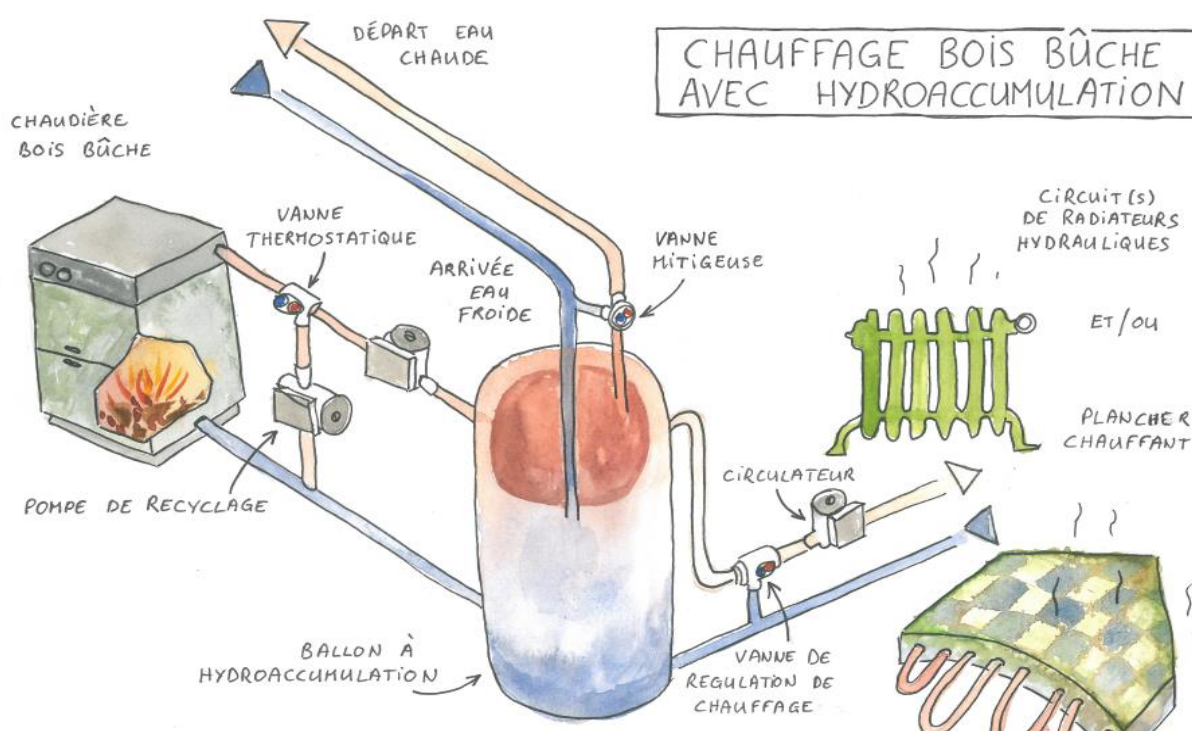 DÉPART EAU
CHAUDE
CHAUFFAGE BOIS BÛCHE
AVEC HYDROACCUMULATION
CHAUDIÈRE
BOIS BÛCHE
VANNE
THERMOSTATIQUE
ARRIVÉE
EAU
FROIDE
VANNE
MITIGEUSE
CIRCUIT(S)
DE RADIATEURS
HYDRAULIQUES
ET/OU
PLANCHER
CHAUFFANT
CIRCULATEUR
POMPE DE RECYCLAGE
BALLON À
HYDROACCUMULATION
VANNE DE
REGULATION DE
CHAUFFAGE